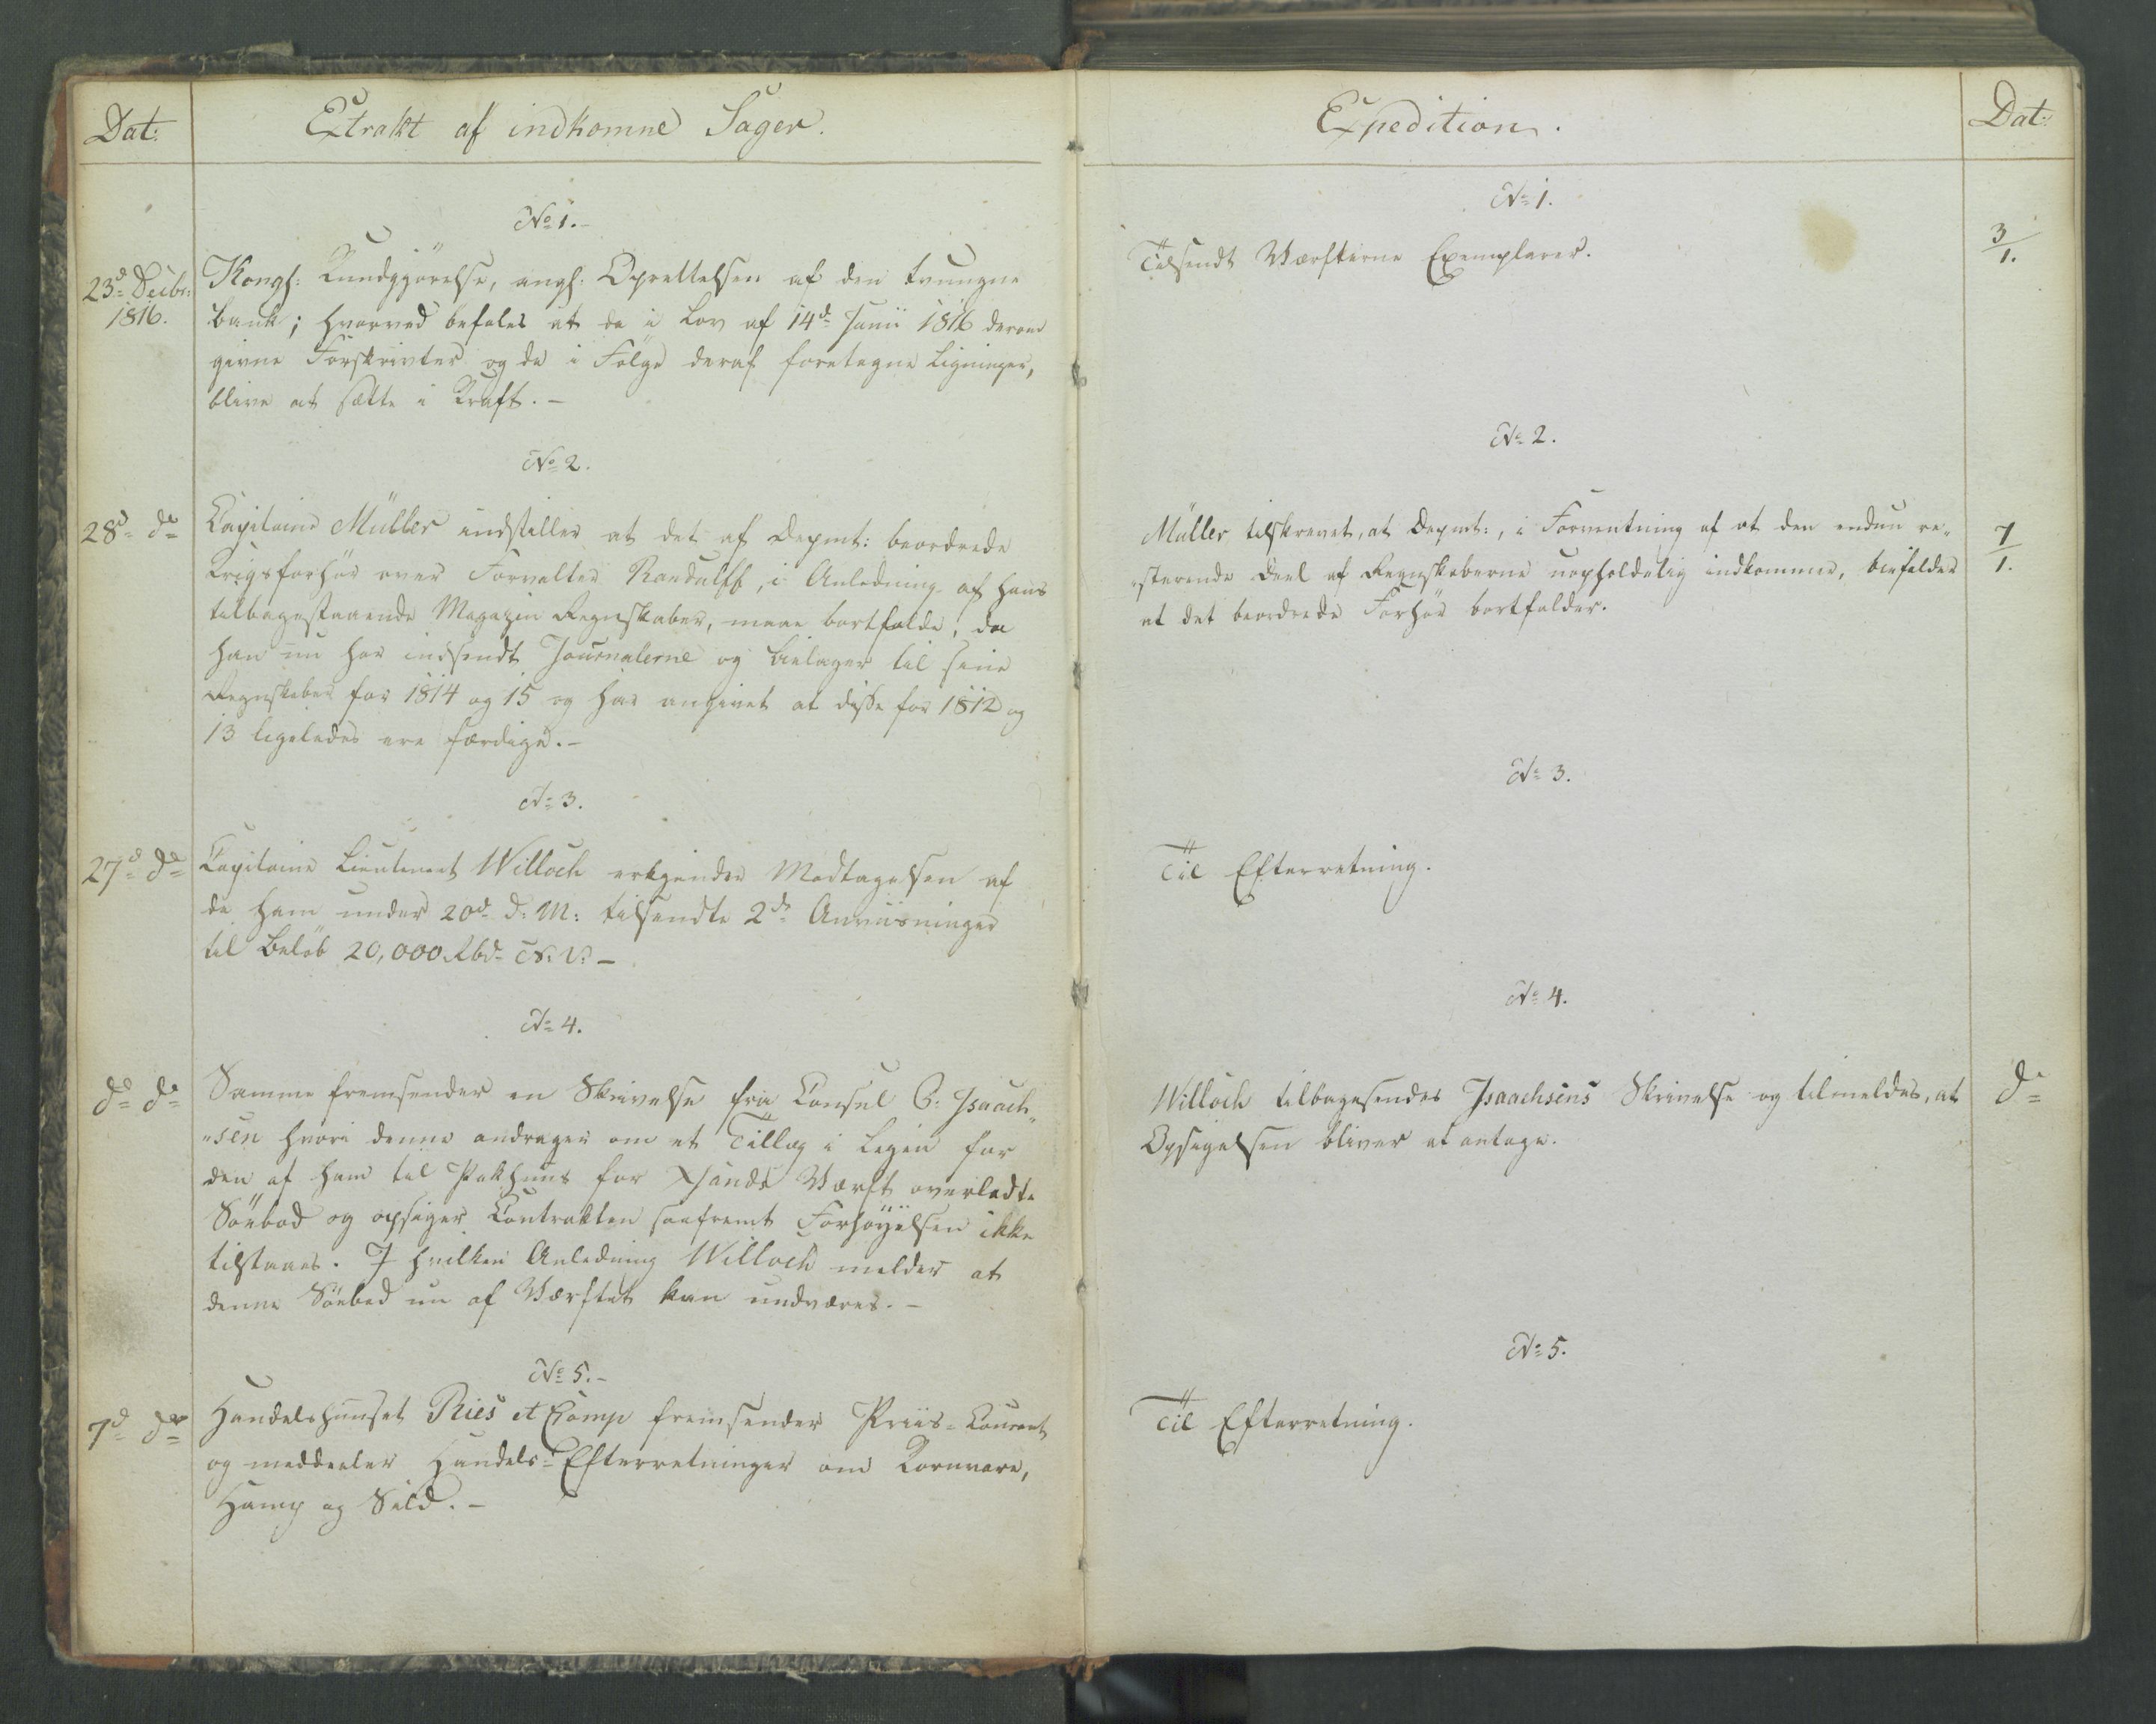 Dat:
Extrakt af indkomne Sager.
No 1.-
23d Decbr: 1816.
Kongl: Kundgjörelse, angl. Oprettelsen af den tvungne
bank; hvorved befales at de i Lov af 14de Junii 1816 derom
givne Forskrivter og de i Fölge deraf foretagne Ligninger,
blive at sætte i Kraft. -
No 2.
28d do
Capitaine Müller indstiller at det af Depmt: beordrede
Krigsforhör over Forvalter Randulff, i Anledning af hans
tilbagestaaende Magazin Regnskaber, maae bortfalde, da
han nu har indsendt Journalerne og Bielager til sine
Regnskaber for 1814 og 15 og har angivet at disse for 1812 og
13 ligeledes ere færdige. -
No 3.
27d do
Capitaine Lieutenant Willoch erkjender Modtagelsen af
de ham under 20d d: M: tilsendte 2de Anviisninger
til Beløb 20,000 Rbd N. V. -
No 4.
do do
Samme fremsender en Skrivelse fra Consul C: Isaach"
"sen hvori denne andrager om et Tillæg i Leien for
den af ham til Pakhuus for Xsands Værft overladte
Söebod og opsiger Contrakten saafremt Forhöyelsen ikke
tilstaaes. I hvilken Anledning Willoch melder at
denne Söebod nu af Værftet kan undværes. -
No 5.-
7d do
Handelshuuset Ries et Comp fremsender Priis-Courant
og meddeeler Handels-Efterretninger om Kornvare,
Hamp og Sild. -
Expedition.
Dat:
No 1.
Tilsendt Værfterne Exemplarer.
3/1.
No 2.
Müller tilskrevet, at Depmt:, i Forventning af at den endnu re-
"sterende Deel af Regnskaberne uopholdelig indkommer, biefalder
at det beordrede Forhör bortfalder.
7/1.
No 3.
Til Efterretning.
No 4.
Willoch tilbagesendes Isaachsens Skrivelse og tilmeldes, at
Opsigelsen bliver at antage.
do
No 5.
Til Efterretning.